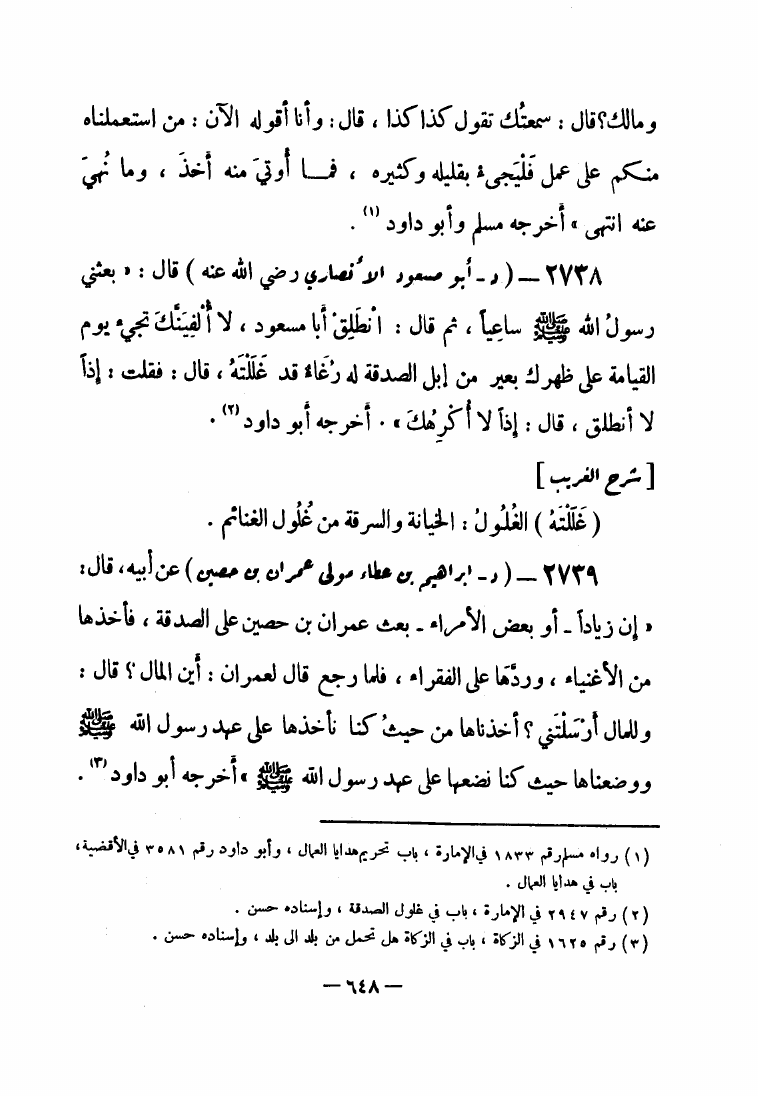 ومالك؟ قال : سمعتُك تقول كذا كذا ، قال : وأنا أقوله الآن : من استعملناه
منكم على عمل فَلْيَجىءْ بقليله وكثيره ، فما أُوتيَ منه أخذَ ، وما نُهيَ
عنه انتهى » أخرجه مسلم وأبو داود (١) .
٢٧٣٨ – ( د - أبو مسعود الأنصاري رضي الله عنه ) قال : « بعثني
رسولُ الله ﷺ ساعِياً ، ثم قال : انْطَلِقْ أبا مسعود ، لا أُلْفِيَنَّكَ تجيءُ يوم
القيامة على ظهرك بعير من إبل الصدقة له رُغَاءٌ قد غَلَلْتَهُ ، قال : فقلت : إذاً
لا أنطلق ، قال : إذاً لا أُكْرِهُكَ » . أخرجه أبو داود (٢) .
[ شرح الغريب ]
( غَلَلْتَهُ ) الغُلُولُ : الخيانة والسرقة من غُلُول الغنائم .
٢٧٣٩ – ( د - ابراهيم بن عطاء مولى عمران بن حصين ) عن أبيه ، قال :
« إن زياداً - أو بعض الأمراء - بعث عمران بن حصين على الصدقة ، فأخذها
من الأغنياء ، وردَّها على الفقراء ، فلما رجع قال لعمران : أين المال ؟ قال :
وللمال أرْسَلْتَني ؟ أخذناها من حيثُ كنا نأخذها على عهد رسول الله ﷺ
ووضعناها حيث كنا نضعها على عهد رسول الله ﷺ » أخرجه أبو داود (٣) .
(١) رواه مسلم رقم ١٨٣٣ في الإمارة ، باب تحريم هدايا العمال ، وأبو داود رقم ٣٥٨١ في الأقضية ،
باب في هدايا العمال .
(٢) رقم ٢٩٤٧ في الإمارة ، باب في غلول الصدقة ، وإسناده حسن .
(٣) رقم ١٦٢٥ في الزكاة ، باب في الزكاة هل تحمل من بلد الى بلد ، وإسناده حسن .
– ٦٤٨ –